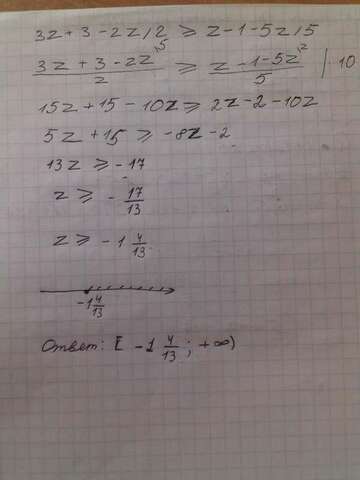 3z + 3 - 2z/2 ⩾ z - 1 - 5z/5
(3z + 3 - 2z)/2 ^5 ⩾ (z - 1 - 5z)/5 ^2 | 10
15z + 15 - 10z ⩾ 2z - 2 - 10z
5z + 15 ⩾ -8z - 2
13z ⩾ -17
z ⩾ - 17/13
z ⩾ -1 4/13
-1 4/13
Ответ: [ -1 4/13 ; +∞)